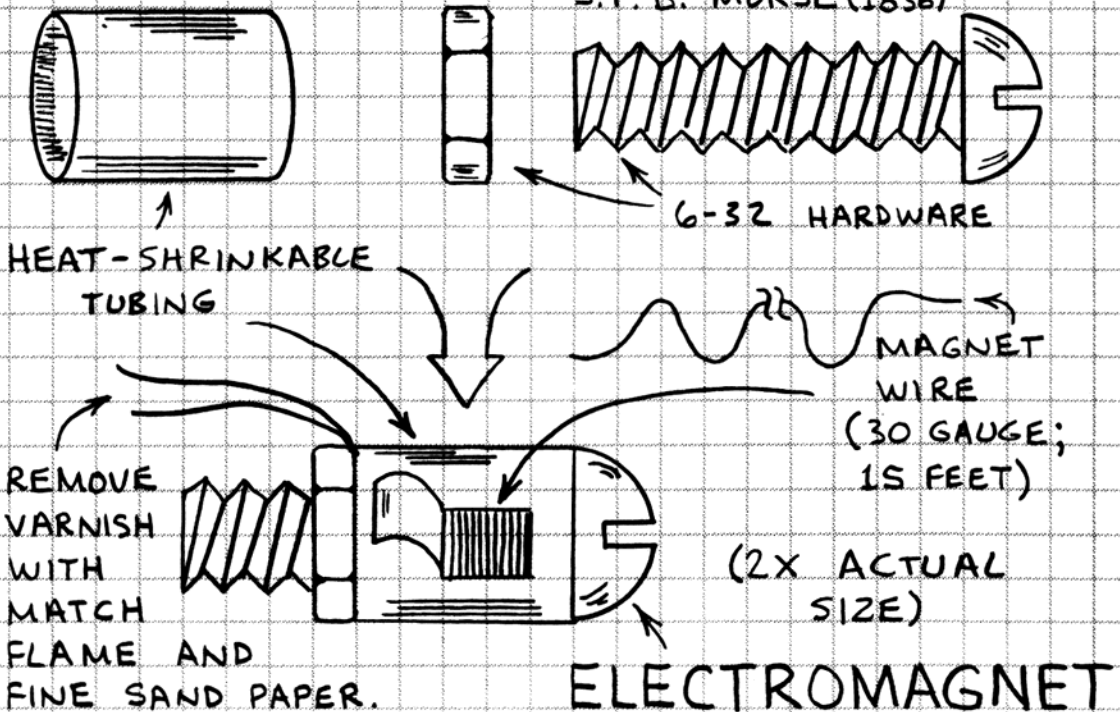 S.F.B. MORSE (1838)
6-32 HARDWARE
HEAT-SHRINKABLE
TUBING
MAGNET
WIRE
(30 GAUGE;
15 FEET)
REMOVE
VARNISH
WITH
MATCH
FLAME AND
FINE SAND PAPER.
(2X ACTUAL
SIZE)
ELECTROMAGNET